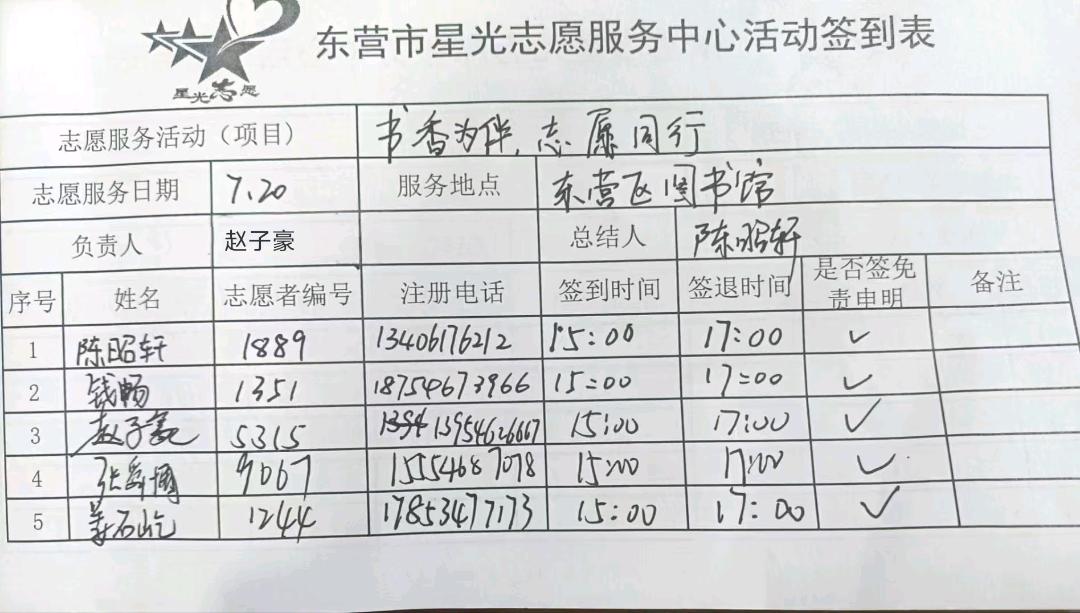 星光志愿
东营市星光志愿服务中心活动签到表
志愿服务活动（项目） 书香为伴，志愿同行
志愿服务日期 7.20 服务地点 东营区图书馆
负责人 赵子豪 总结人 陈昭轩
序号 姓名 志愿者编号 注册电话 签到时间 签退时间 是否签免责申明 备注
1 陈昭轩 1889 13406176212 15:00 17:00 ✓
2 钱畅 1351 18754673966 15:00 17:00 ✓
3 赵子豪 5315 13954626667 15:00 17:00 ✓
4 张 9067 15554687078 15:00 17:00 ✓
5 姜石屹 1244 17853477173 15:00 17:00 ✓